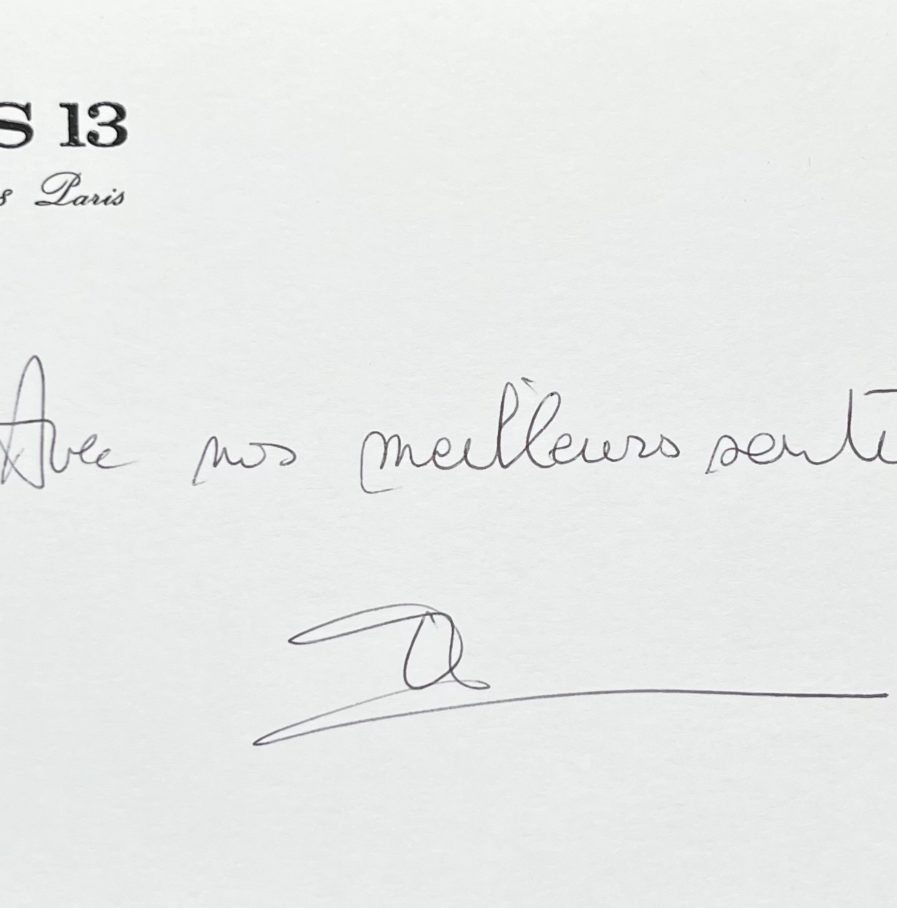 S 13
8 Paris
Avec nos meilleurs senti